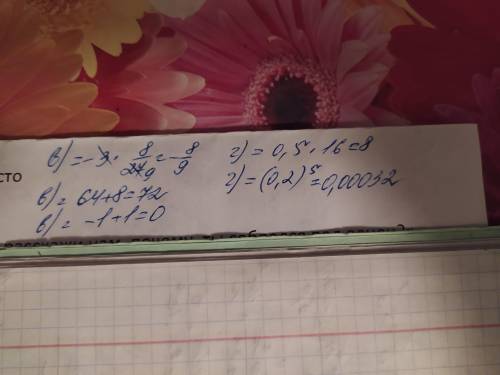 в) = -3 · 8/27 9 = -8/9
г) = 0,5 · 16 = 8
сто
в) = 64+8=72
г) = (0,2)⁵ = 0,00032
в) = -1+1=0